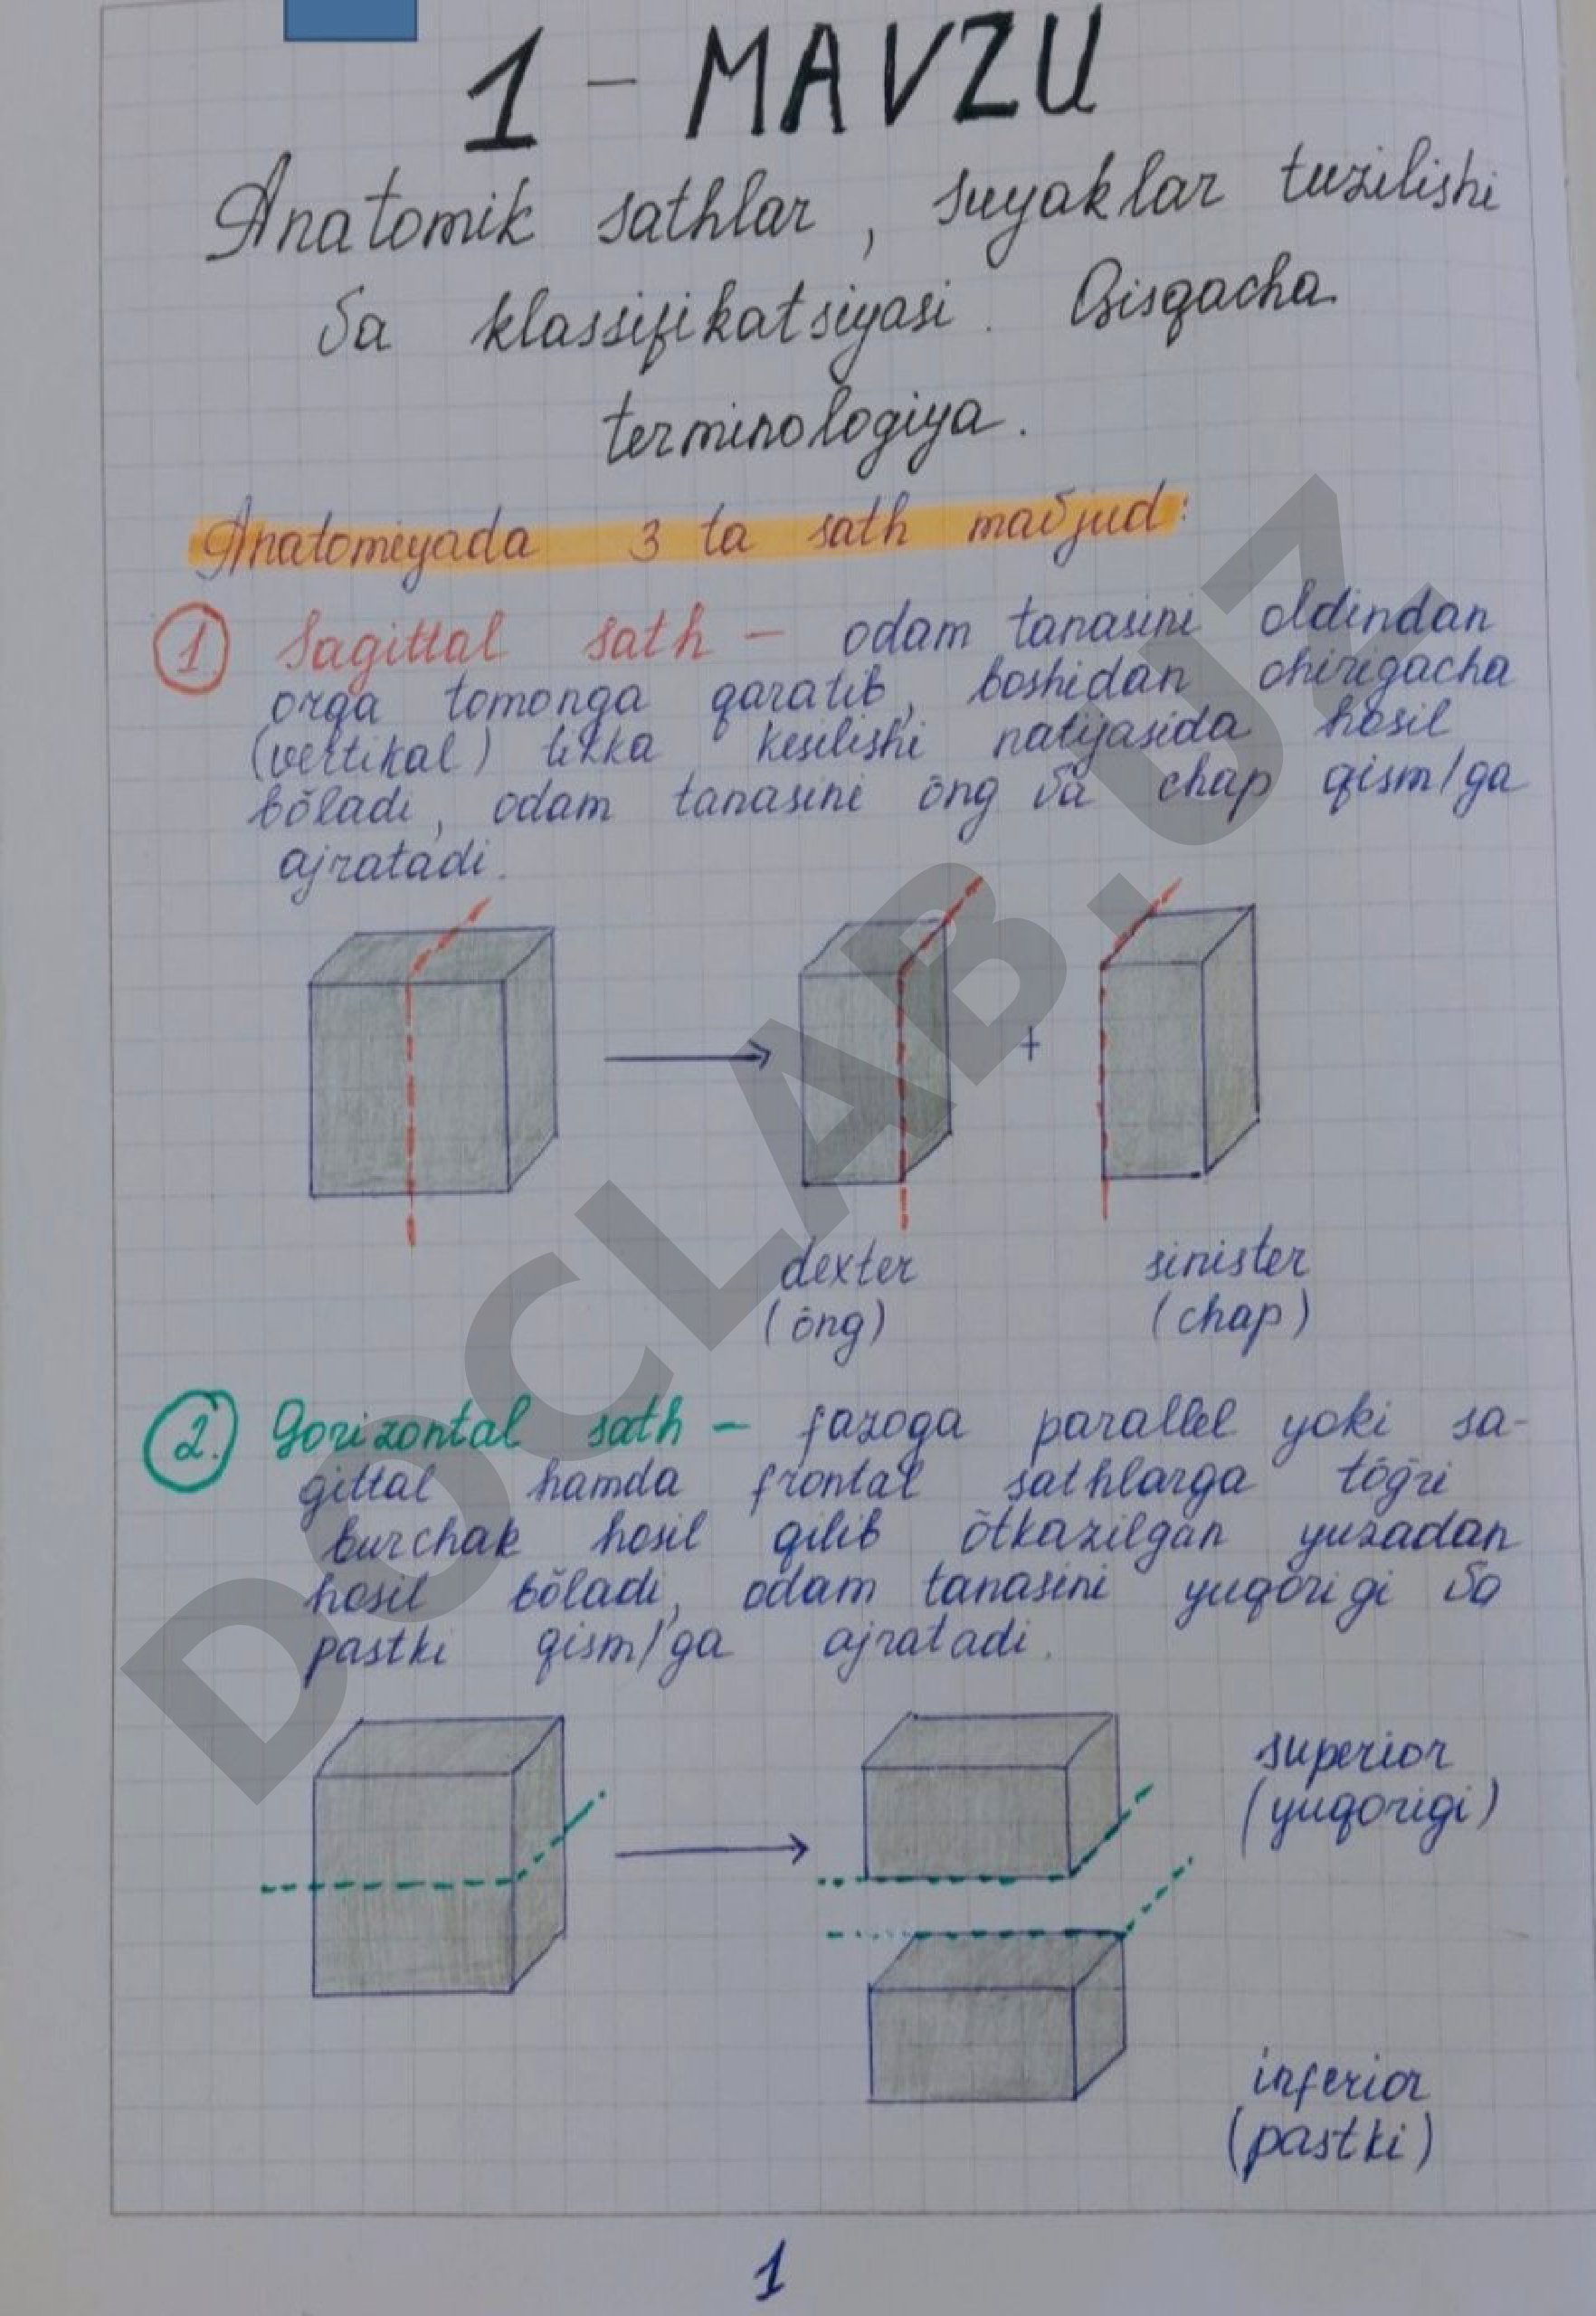 1 - MAVZU
Anatomik sathlar, suyaklar tuzilishi
va klassifikatsiyasi. Qisqacha
terminologiya.
Anatomiyada 3 ta sath mavjud:
1 Sagittal sath - odam tanasini oldindan
orqa tomonga qaratib, boshidan ohirigacha
(vertikal) tikka kesilishi natijasida hosil
bõladi, odam tanasini õng va chap qism/ga
ajratadi.
+
dexter sinister
(õng) (chap)
2. Gorizontal sath - fazoga parallel yoki sa-
gittal hamda frontal sathlarga tõg̃ri
burchak hosil qilib õtkazilgan yuzadan
hosil bõladi, odam tanasini yuqorigi va
pastki qism/ga ajratadi.
superior
(yuqorigi)
inferior
(pastki)
1
DOCLAB.UZ